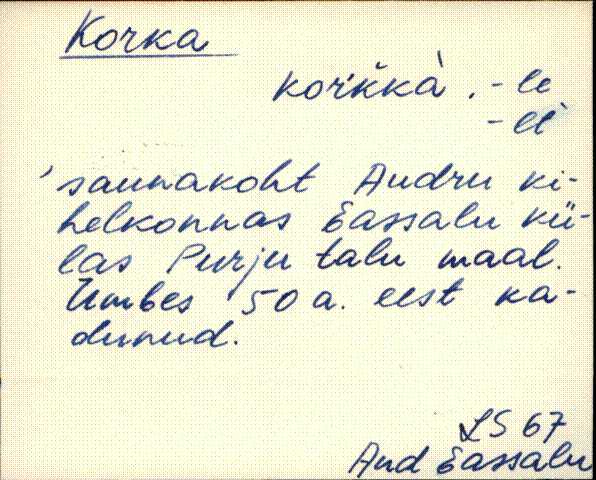 Korka
kor̀k̆kà . - le
- lt
'saunakoht Audru ki-
helkonnas Eassalu kü-
las Purju talu maal.
Umbes 50 a. eest ka-
dunud.
LS 67
Aud Eassalu